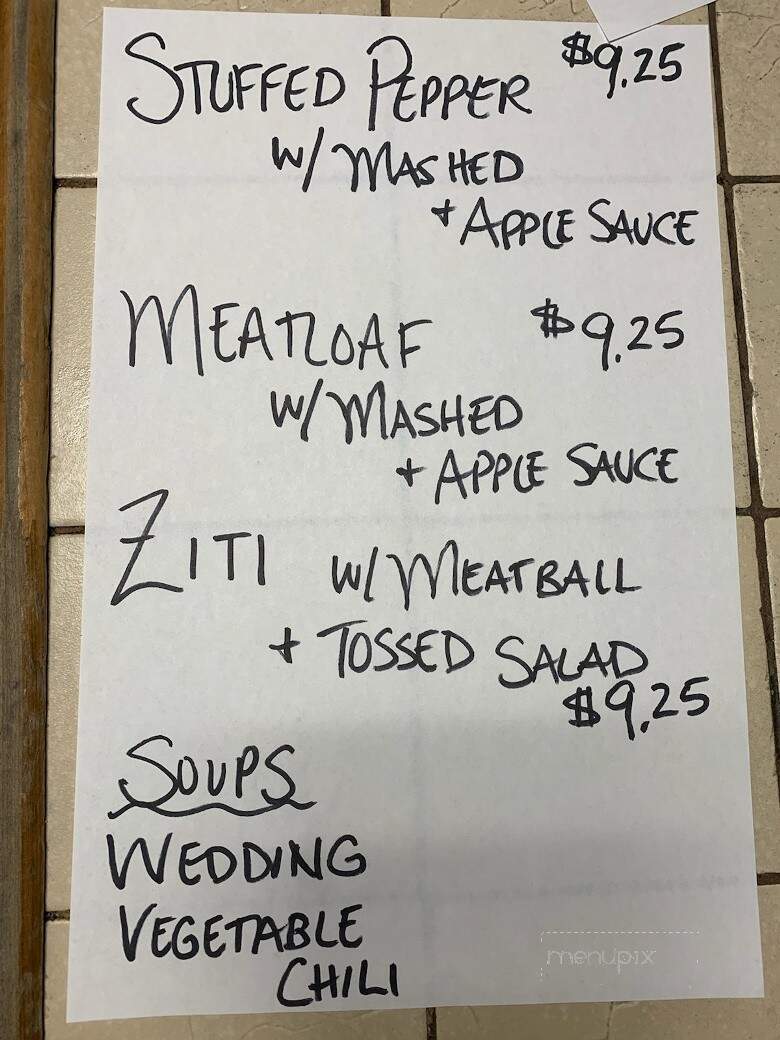 STUFFED PEPPER $9.25
W/ MASHED
+ APPLE SAUCE
MEATLOAF $9.25
W/ MASHED
+ APPLE SAUCE
ZITI W/ MEATBALL
+ TOSSED SALAD
$9.25
SOUPS
WEDDING
VEGETABLE
CHILI
menupix